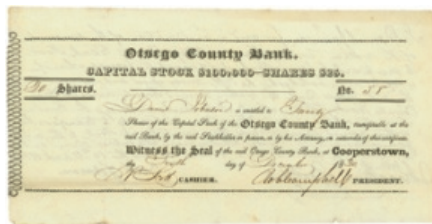 Otsego County Bank.
CAPITAL STOCK $100,000—SHARES $25.
30 Shares. No. 58
is entitled to
Shares of the Capital Stock of the Otsego County Bank, transferable at the
said Bank, by the said Stockholder in person, or by his Attorney, on surrender of this certificate.
Witness the Seal of the said Otsego County Bank, at Cooperstown,
the day of 18
CASHIER. Campbell PRESIDENT.